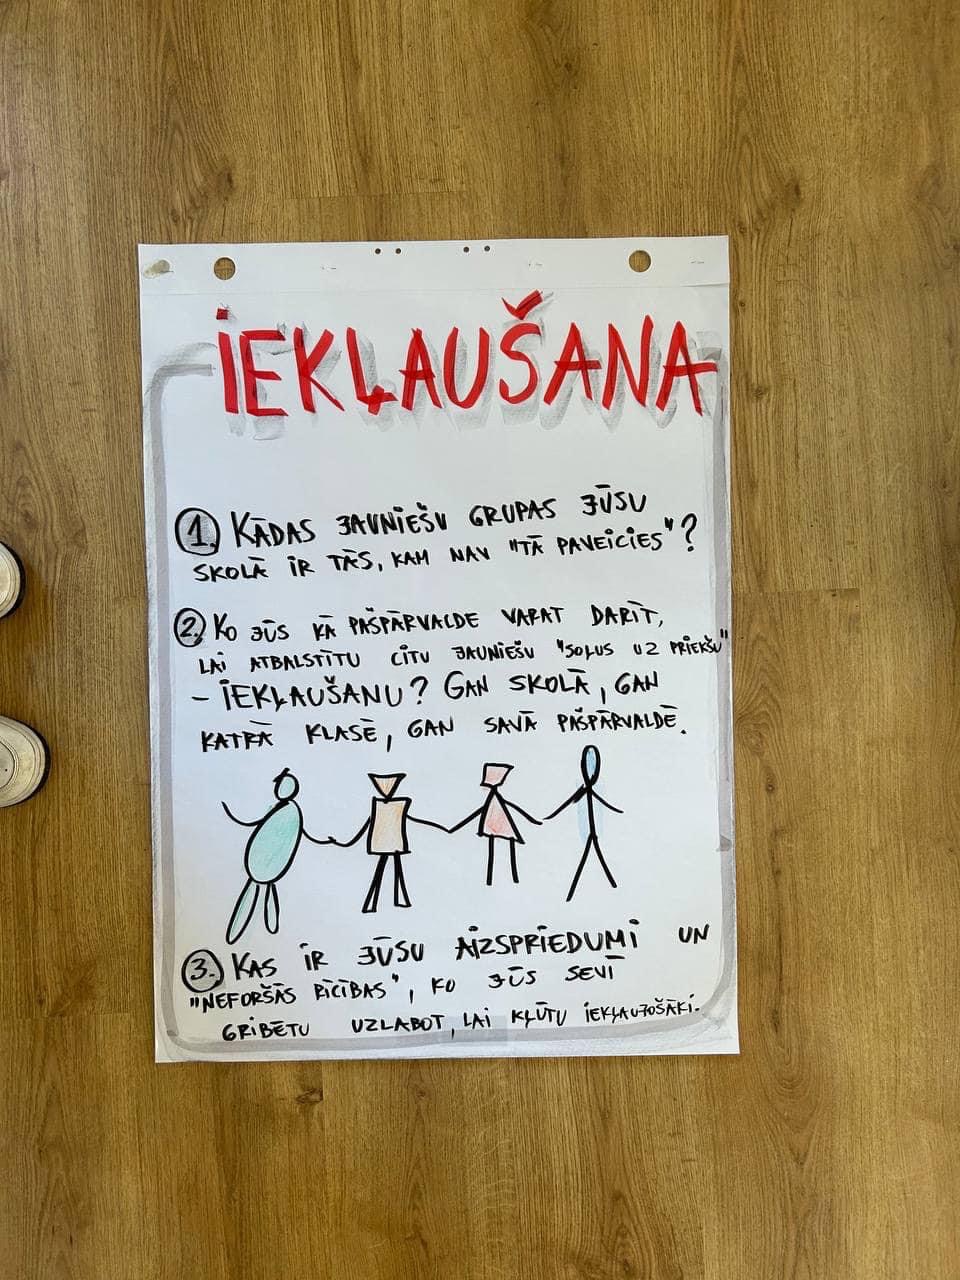 IEKĻAUŠANA
1. KĀDAS JAUNIEŠU GRUPAS JŪSU
SKOLĀ IR TĀS, KAM NAV "TĀ PAVEICIES"?
2. KO JŪS KĀ PAŠPĀRVALDE VARAT DARĪT,
LAI ATBALSTĪTU CITU JAUNIEŠU "SOĻUS UZ PRIEKŠU"
- IEKĻAUŠANU? GAN SKOLĀ, GAN
KATRĀ KLASĒ, GAN SAVĀ PAŠPĀRVALDĒ.
3. KAS IR JŪSU AIZSPRIEDUMI UN
"NEFORŠĀS RĪCĪBAS", KO JŪS SEVĪ
GRIBĒTU UZLABOT, LAI KĻŪTU IEKĻAUJOŠĀKI.